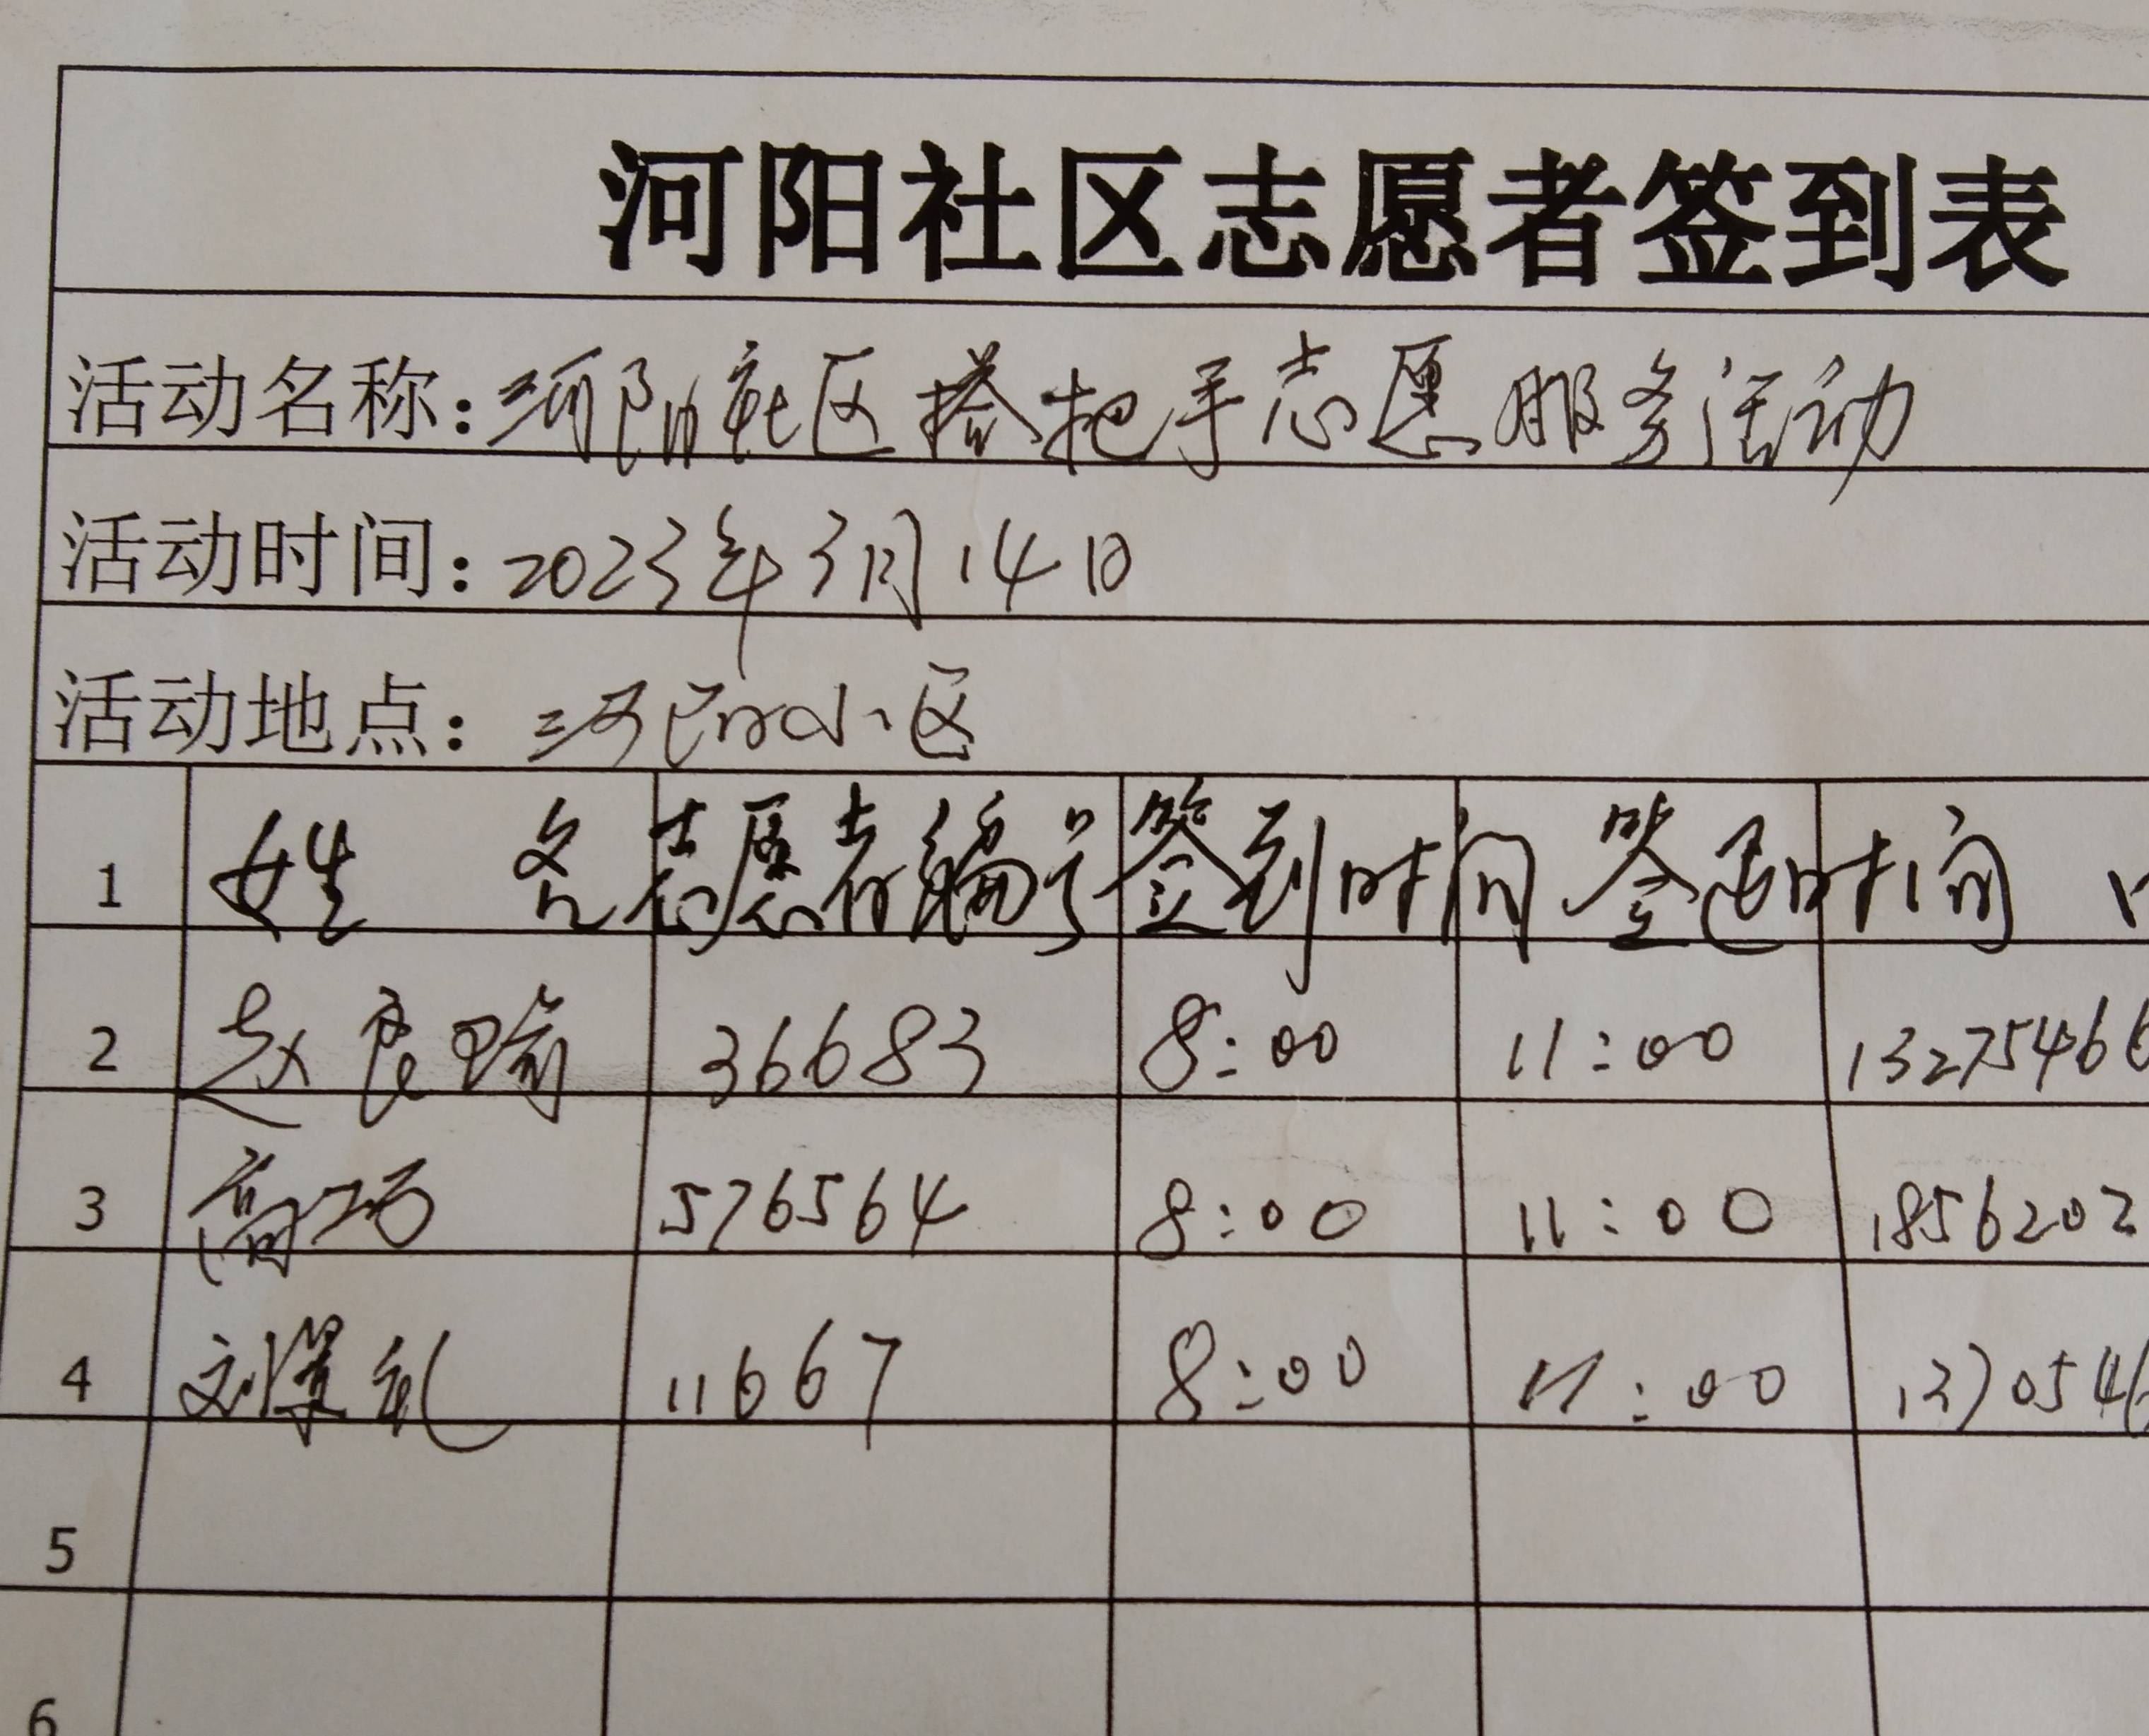 河阳社区志愿者签到表
活动名称：河阳社区搭把手志愿服务活动
活动时间：2023年3月14日
活动地点：河阳小区
1 姓 名 志愿者编号 签到时间 签退时间
2 赵良瑜 36683 8:00 11:00 13275466
3 高巧 576564 8:00 11:00 1856202
4 刘 礼 11667 8:00 11:00 137054
5
6